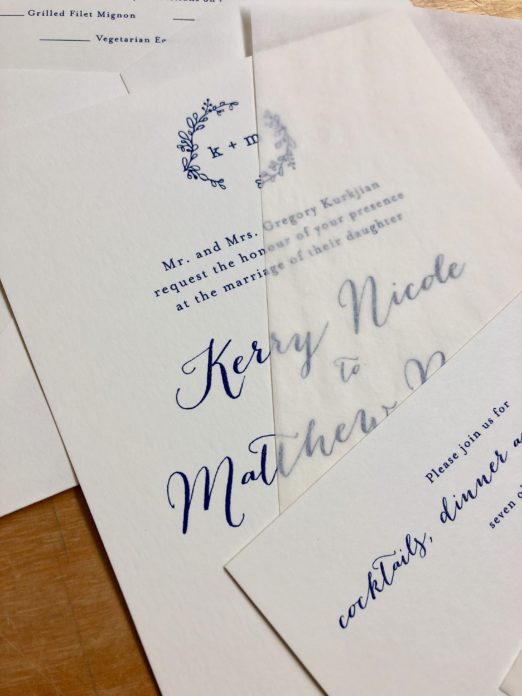 Grilled Filet Mignon
Vegetarian
k + m
Mr. and Mrs. Gregory Kurkjian
request the honour of your presence
at the marriage of their daughter
Kerry Nicole
to
Matthew
Please join us for
cocktails, dinner
seven